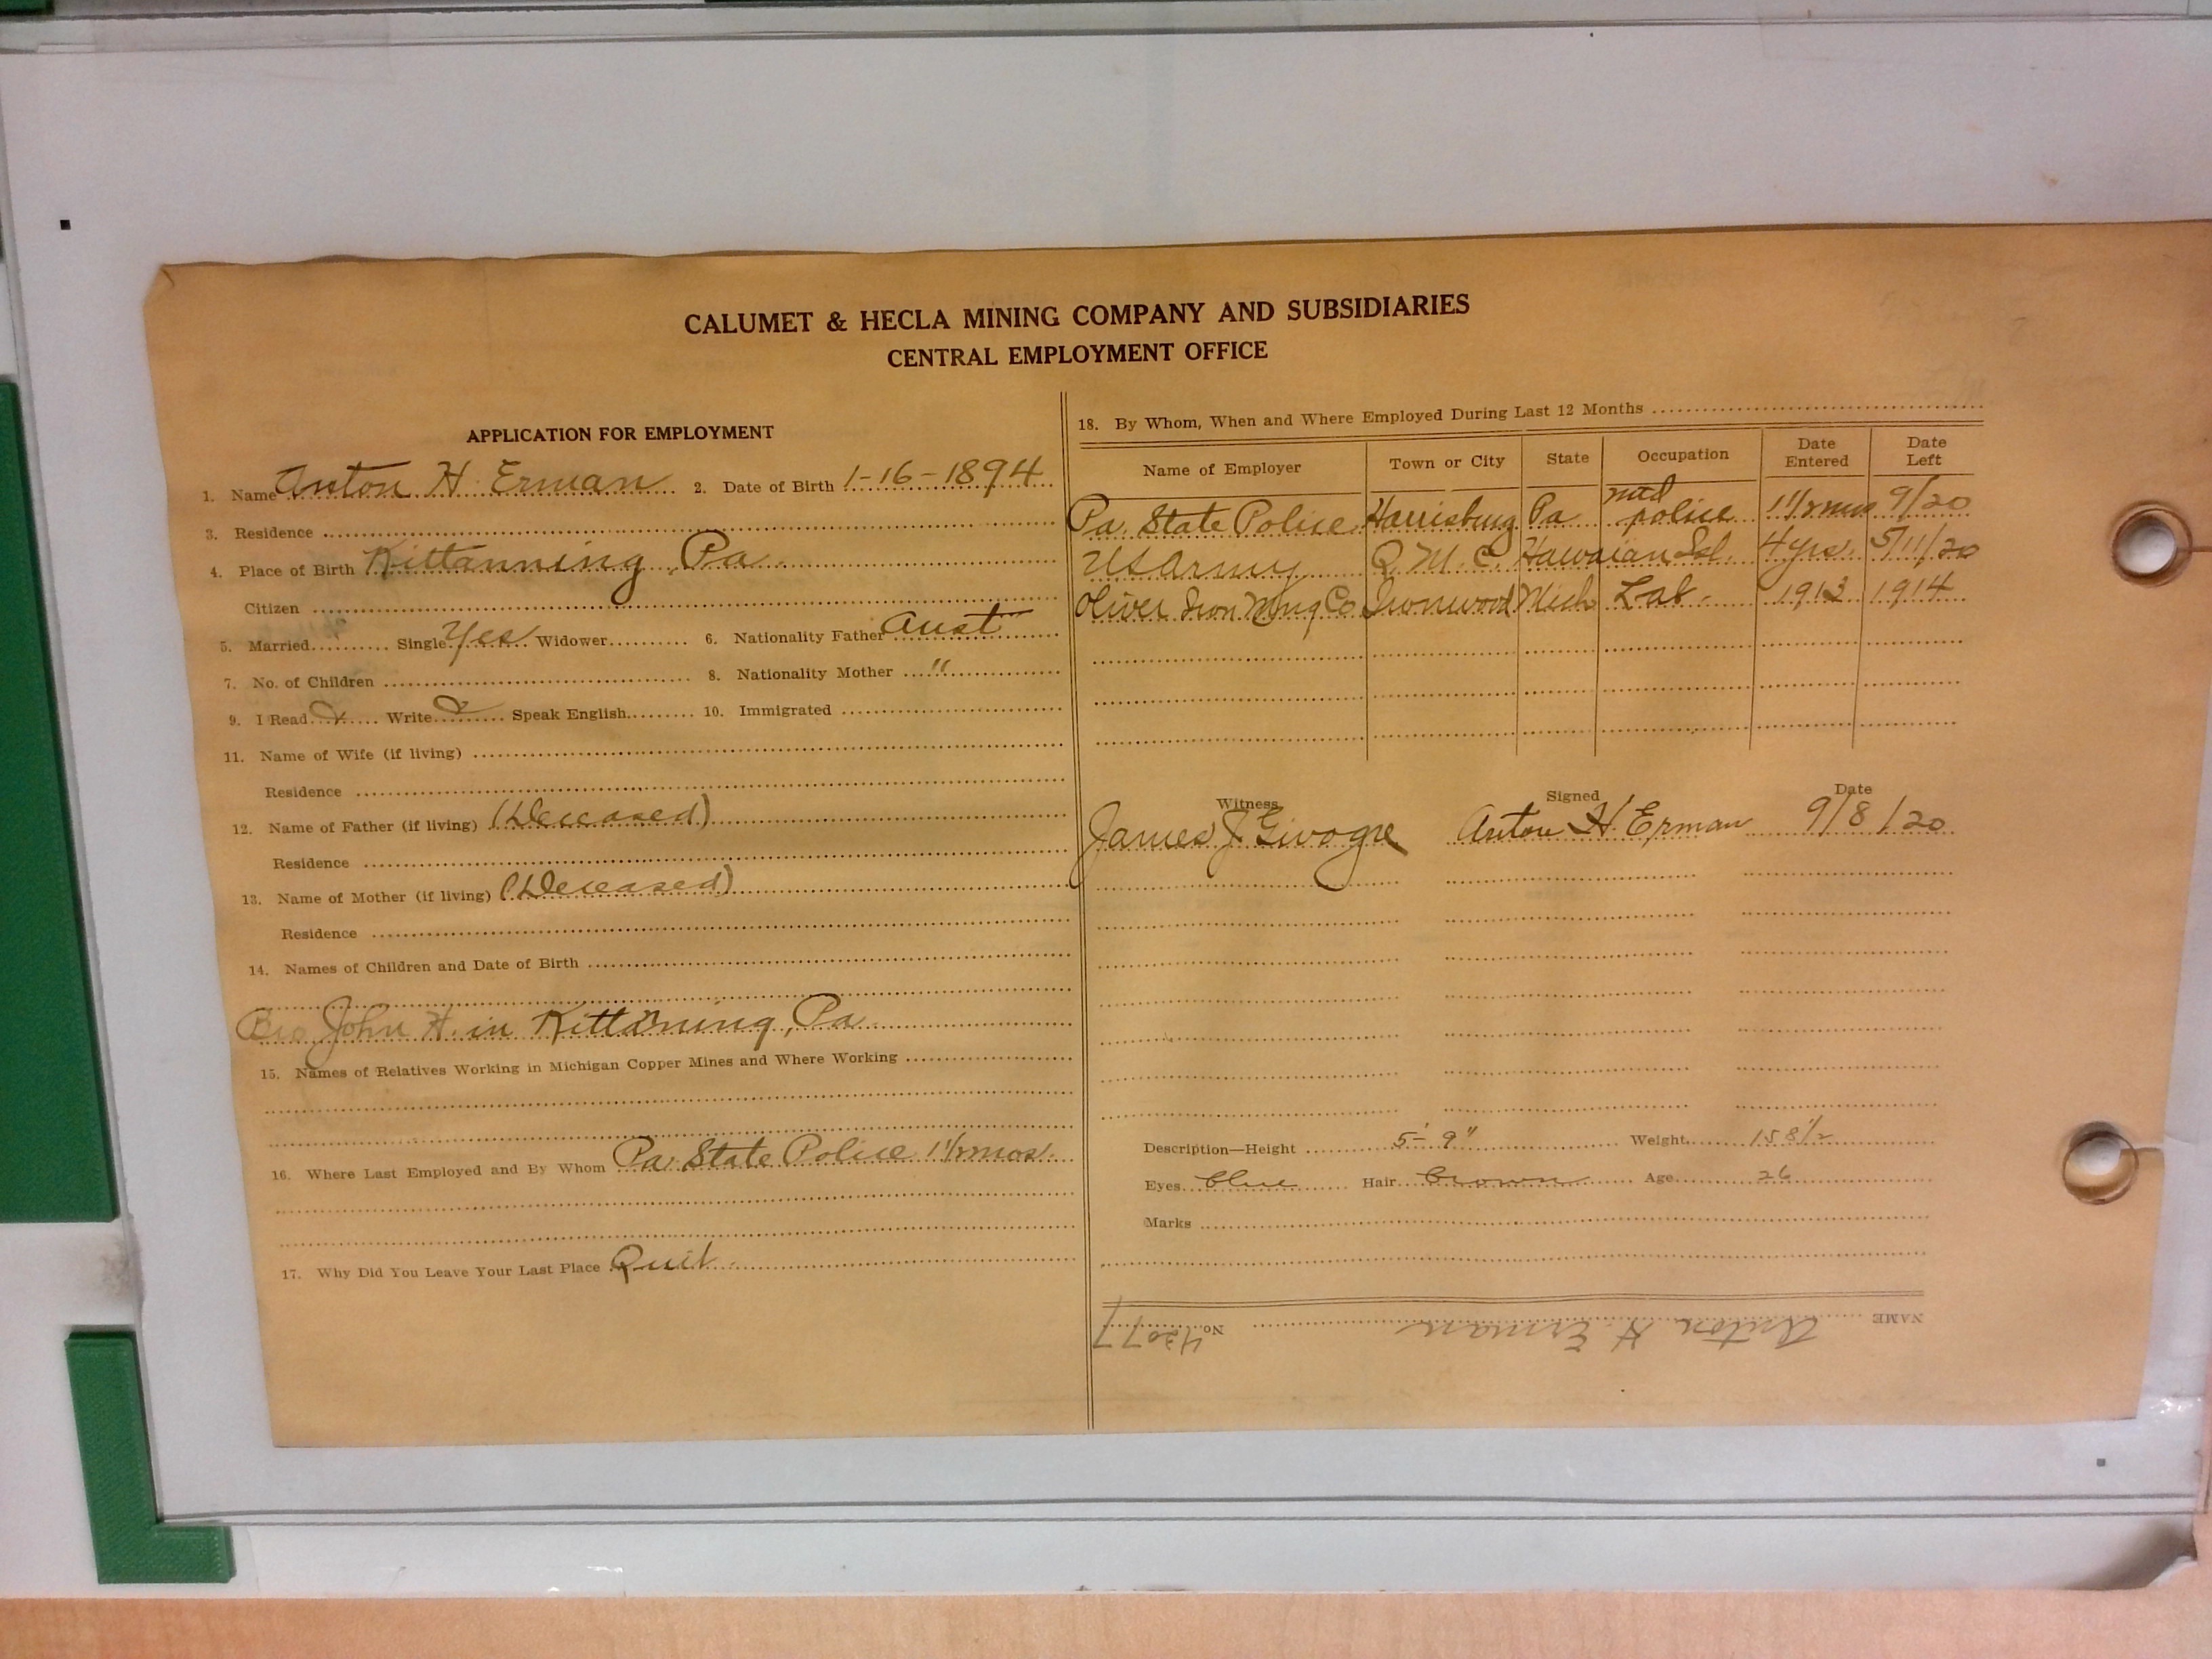 CALUMET & HECLA MINING COMPANY AND SUBSIDIARIES
CENTRAL EMPLOYMENT OFFICE
APPLICATION FOR EMPLOYMENT
1. Name Anton H. Erman 2. Date of Birth 1-16-1894
3. Residence
4. Place of Birth Kittanning Pa.
Citizen
5. Married Single Yes Widower 6. Nationality Father Aust
7. No. of Children 8. Nationality Mother "
9. I Read Write Speak English 10. Immigrated
11. Name of Wife (if living)
Residence
12. Name of Father (if living) (Deceased)
Residence
13. Name of Mother (if living) (Deceased)
Residence
14. Names of Children and Date of Birth
Bro John H. in Kittanning, Pa
15. Names of Relatives Working in Michigan Copper Mines and Where Working
16. Where Last Employed and By Whom Pa. State Police 1 1/2 mos.
17. Why Did You Leave Your Last Place Quit
18. By Whom, When and Where Employed During Last 12 Months
Name of Employer Town or City State Occupation Date Entered Date Left
Pa. State Police Harrisburg Pa police 1 1/2 mos 9/20
US Army Q. M. C. Hawaiian Isl. 4 yrs. 5/11/20
Oliver Iron Mng Co Ironwood Mich Lab. 1913 1914
Witness Signed Date
James J Anton H. Erman 9/8/20
Description—Height 5'-9" Weight 158 1/2
Eyes blue Hair brown Age 26
Marks
NAME Anton H. Erman No. 42077